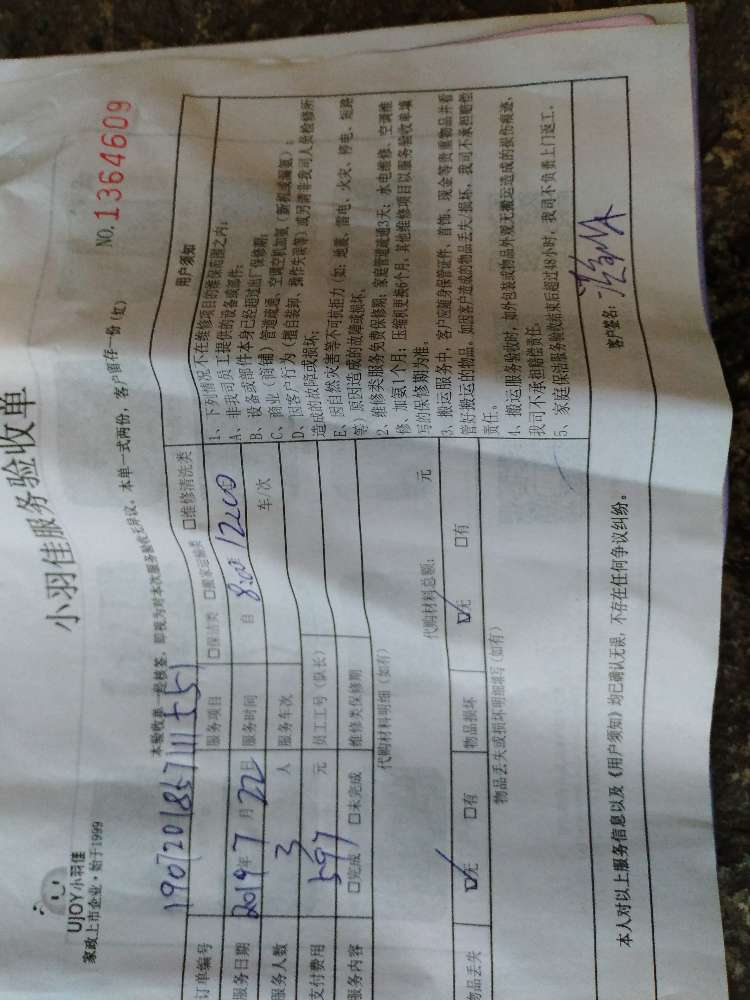 UJOY小羽佳
家政上市企业·始于1999
小羽佳服务验收单
NO.1364609
本验收单一经核签，即视为对本次服务验收无异议。本单一式两份，客户留存一份(红)
订单编号
服务项目 □保洁类 □搬家运输类 □维修清洗类
服务日期 2019年7月22日 服务时间 自 8:00 1200
服务人数 3 人 服务车次 车/次
支付费用 597 元 员工工号(队长)
服务内容 □完成 □未完成 维修类保修期
代购材料明细(如有)
代购材料总额: 元
物品丢失 ☑无 □有 物品损坏 ☑无 □有
物品丢失或损坏明细填写(如有)
用户须知
1、下列情况不在维修项目的维保范围之内:
A、非我司员工提供的设备或部件;
B、设备或部件本身已经超过出厂保修期;
C、商业(商铺)管道疏通、空调空机加氨(新机或漏氨);
D、因客户行为(擅自装卸、操作失误等)或另请非我司人员检修所
造成的故障或损坏;
E、因自然灾害等不可抗拒力(如:地震、雷电、火灾、停电、短路
等)原因造成的故障或损坏。
2、维修类服务免费保修期:家庭管道疏通3天;水电维修、空调维
修、加氨1个月;压缩机更换6个月,其他维修项目以服务验收单填
写的保修期为准。
3、搬运服务中,客户应随身保管证件、首饰、现金等贵重物品并看
管好搬运的物品。如因客户造成的物品丢失/损坏,我司不承担赔偿
责任。
4、搬运服务验收时,如外包装或物品外观无搬运造成的损伤痕迹,
我司不承担赔偿责任。
5、家庭保洁服务验收结束后超过48小时,我司不负责上门返工。
本人对以上服务信息以及《用户须知》均已确认无误,不存在任何争议纠纷。
客户签名: